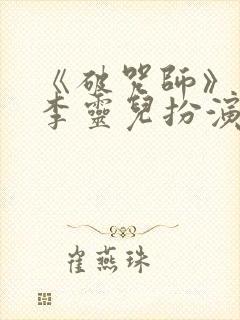 《破咒師》
李靈兒扮演
崔燕珠